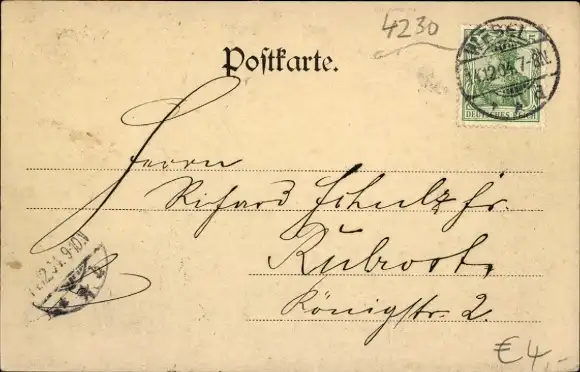 4230
Postkarte.
WESEL
12.04. 7-8N.
DEUTSCHES REICH
Herrn
Richard Schulz jr.
Ruhrort.
12.04. 9-10N
Königstr. 2.
€4,-